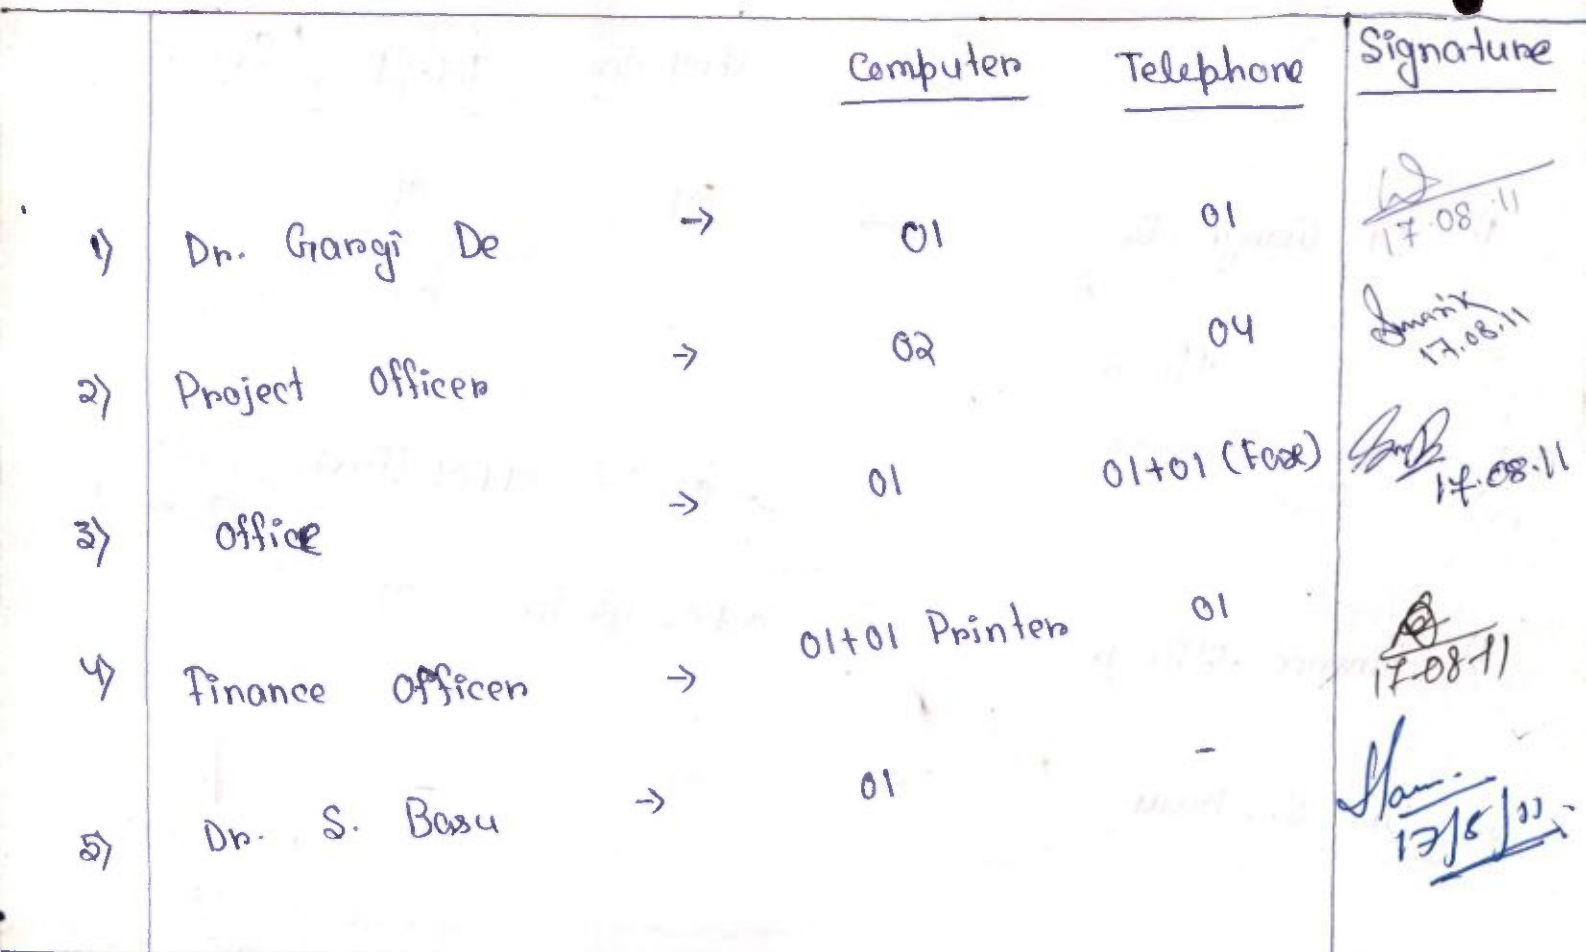 Computer Telephone Signature
1) Dr. Gargi De → 01 01 17.08.11
2) Project Officer → 02 04 17.08.11
3) Office → 01 01+01 (Fax) 17.08.11
4) Finance Officer → 01+01 Printer 01 17-08-11
5) Dr. S. Basu → 01 - 17/8/11